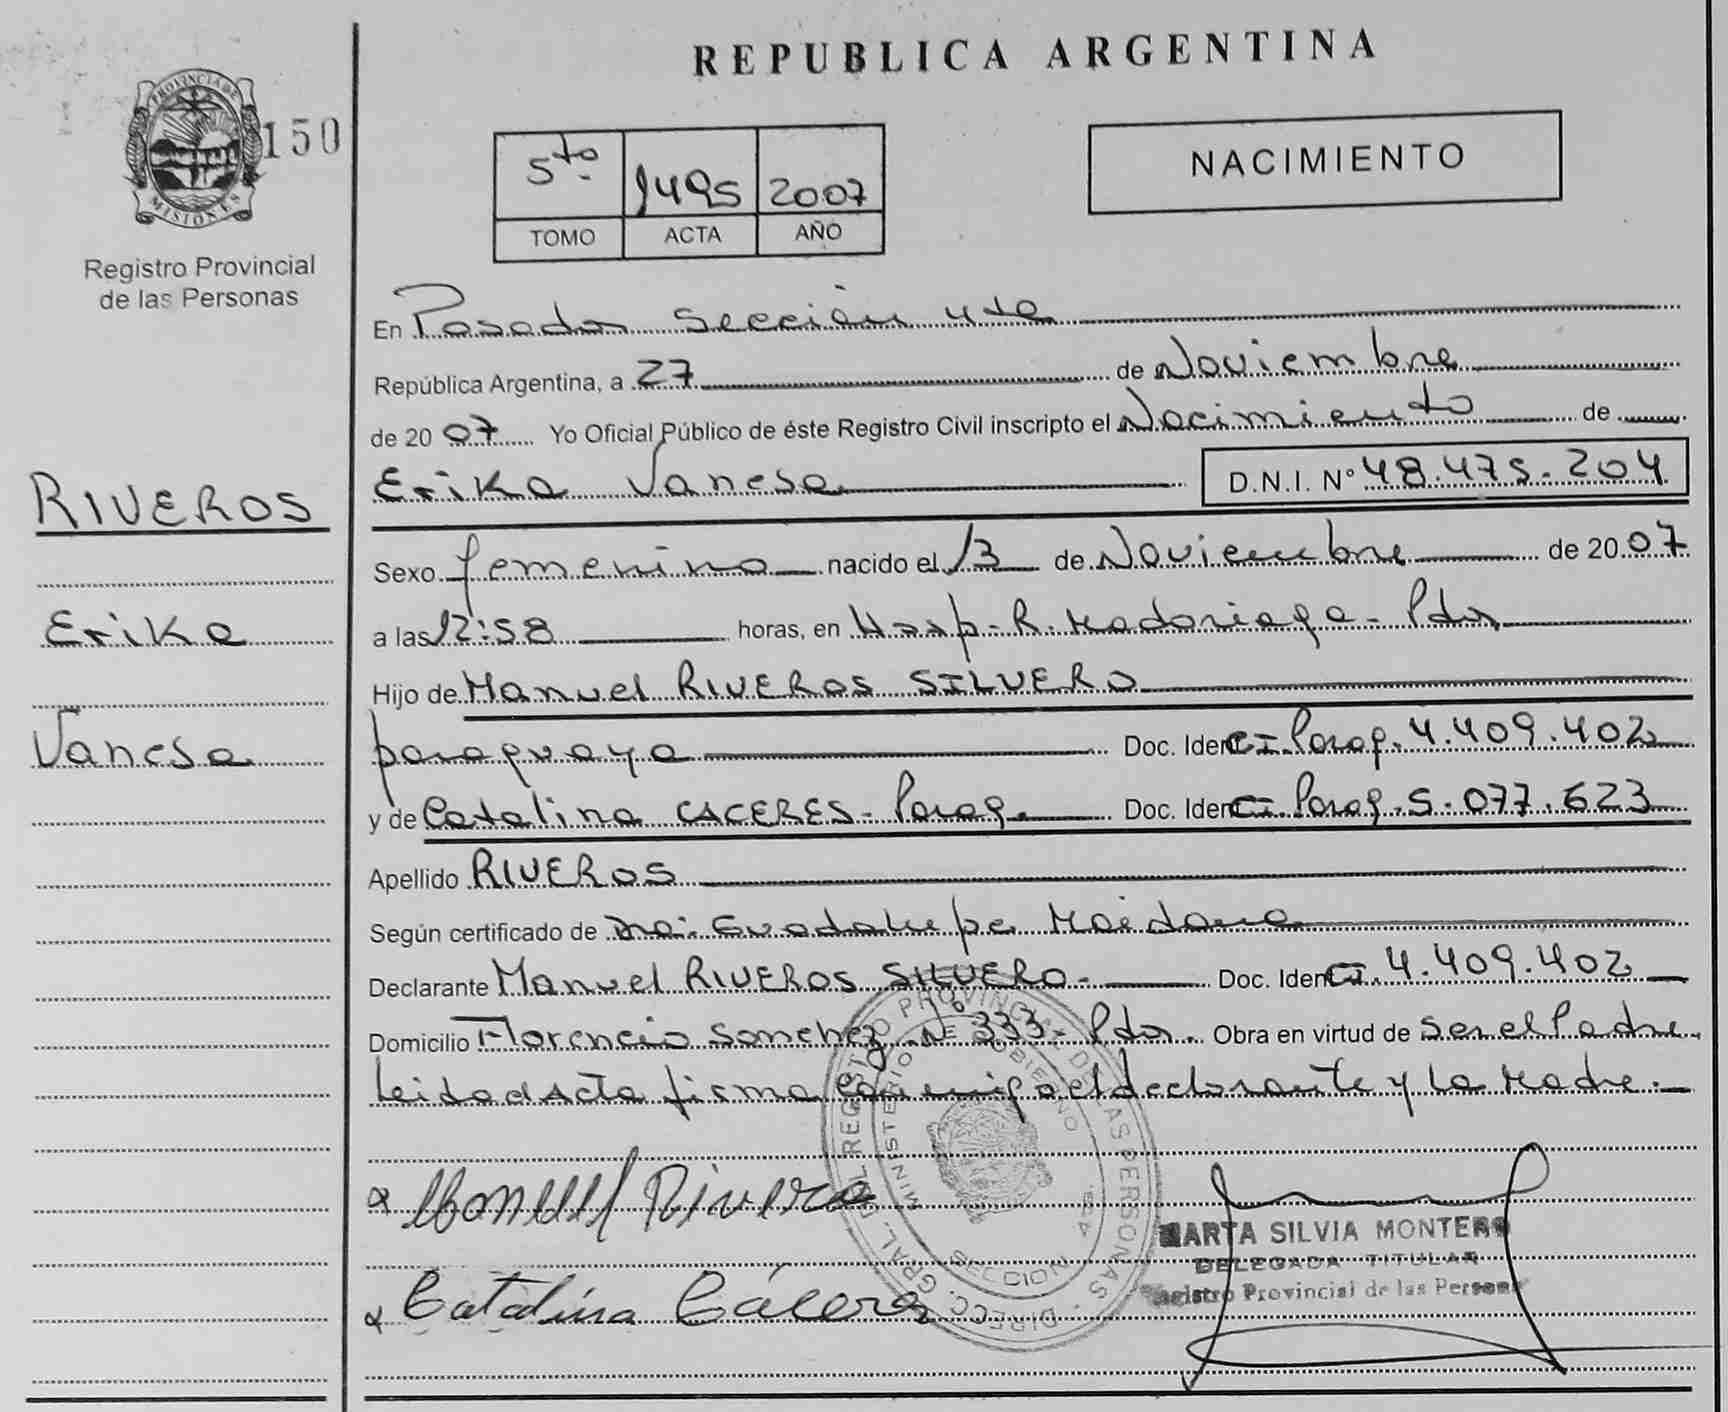 REPUBLICA ARGENTINA
PROVINCIA DE
MISIONES
150
Registro Provincial
de las Personas
5to 1495 2007
TOMO ACTA AÑO
NACIMIENTO
En Posadas Sección 4ta
República Argentina, a 27 de Noviembre
de 2007 Yo Oficial Público de éste Registro Civil inscripto el Nacimiento de
Erika Vanesa D.N.I. Nº 48.475.204
RIVEROS
Erika
Vanesa
Sexo femenino nacido el 13 de Noviembre de 2007
a las 12:58 horas, en Hosp. R. Madariaga - Pdas
Hijo de Manuel RIVEROS SILVERO
paraguaya Doc. Ident C.I. Parag. 4.409.402
y de Catalina CACERES - Parag. Doc. Ident C.I. Parag. 5.077.623
Apellido RIVEROS
Según certificado de Dra. Guadalupe Maidana
Declarante Manuel RIVEROS SILVERO - Doc. Ident C.I. 4.409.402
Domicilio Florencio Sanchez Nº 333 - Pdas. Obra en virtud de ser el Padre
Leida el Acta firma conmigo el declarante y la Madre.-
Manuel Riveros
Catalina Cáceres
DIRECC. GRAL. DEL REGISTRO PROVINCIAL DE LAS PERSONAS
MINISTERIO DE GOBIERNO
SECCION 4ª
MARTA SILVIA MONTERO
DELEGADA TITULAR
Registro Provincial de las Personas